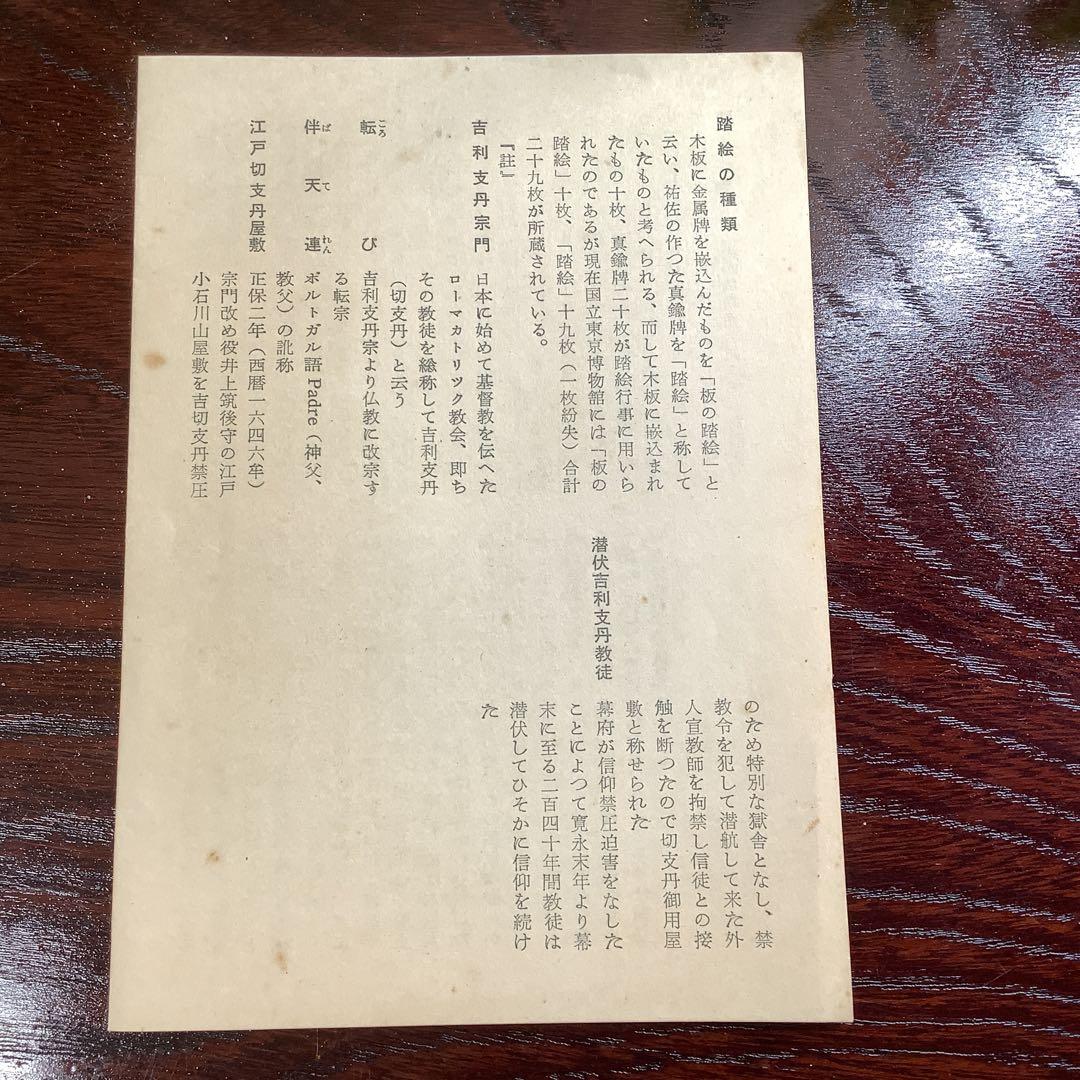 踏絵の種類
木板に金属牌を嵌込んだものを「板の踏絵」と
云い、祐佐の作つた真鍮牌を「踏絵」と称して
いたものと考へられる、而して木板に嵌込まれ
たもの十枚、真鍮牌二十枚が踏絵行事に用いら
れたのであるが現在国立東京博物館には「板の
踏絵」十枚、「踏絵」十九枚(一枚紛失)合計
二十九枚が所蔵されている。
『註』
吉利支丹宗門
日本に始めて基督教を伝へた
ローマカトリツク教会、即ち
その教徒を総称して吉利支丹
(切支丹)と云う
転び
ころ
吉利支丹宗より仏教に改宗す
る転宗
伴天連
ばてれん
ポルトガル語 Padre(神父、
教父)の訛称
江戸切支丹屋敷
正保二年(西暦一六四六牟)
宗門改め役井上筑後守の江戸
小石川山屋敷を吉切支丹禁圧
のため特別な獄舎となし、禁
教令を犯して潜航して来た外
人宣教師を拘禁し信徒との接
触を断つたので切支丹御用屋
敷と称せられた
潜伏吉利支丹教徒
幕府が信仰禁圧迫害をなした
ことによつて寛永末年より幕
末に至る二百四十年間教徒は
潜伏してひそかに信仰を続け
た